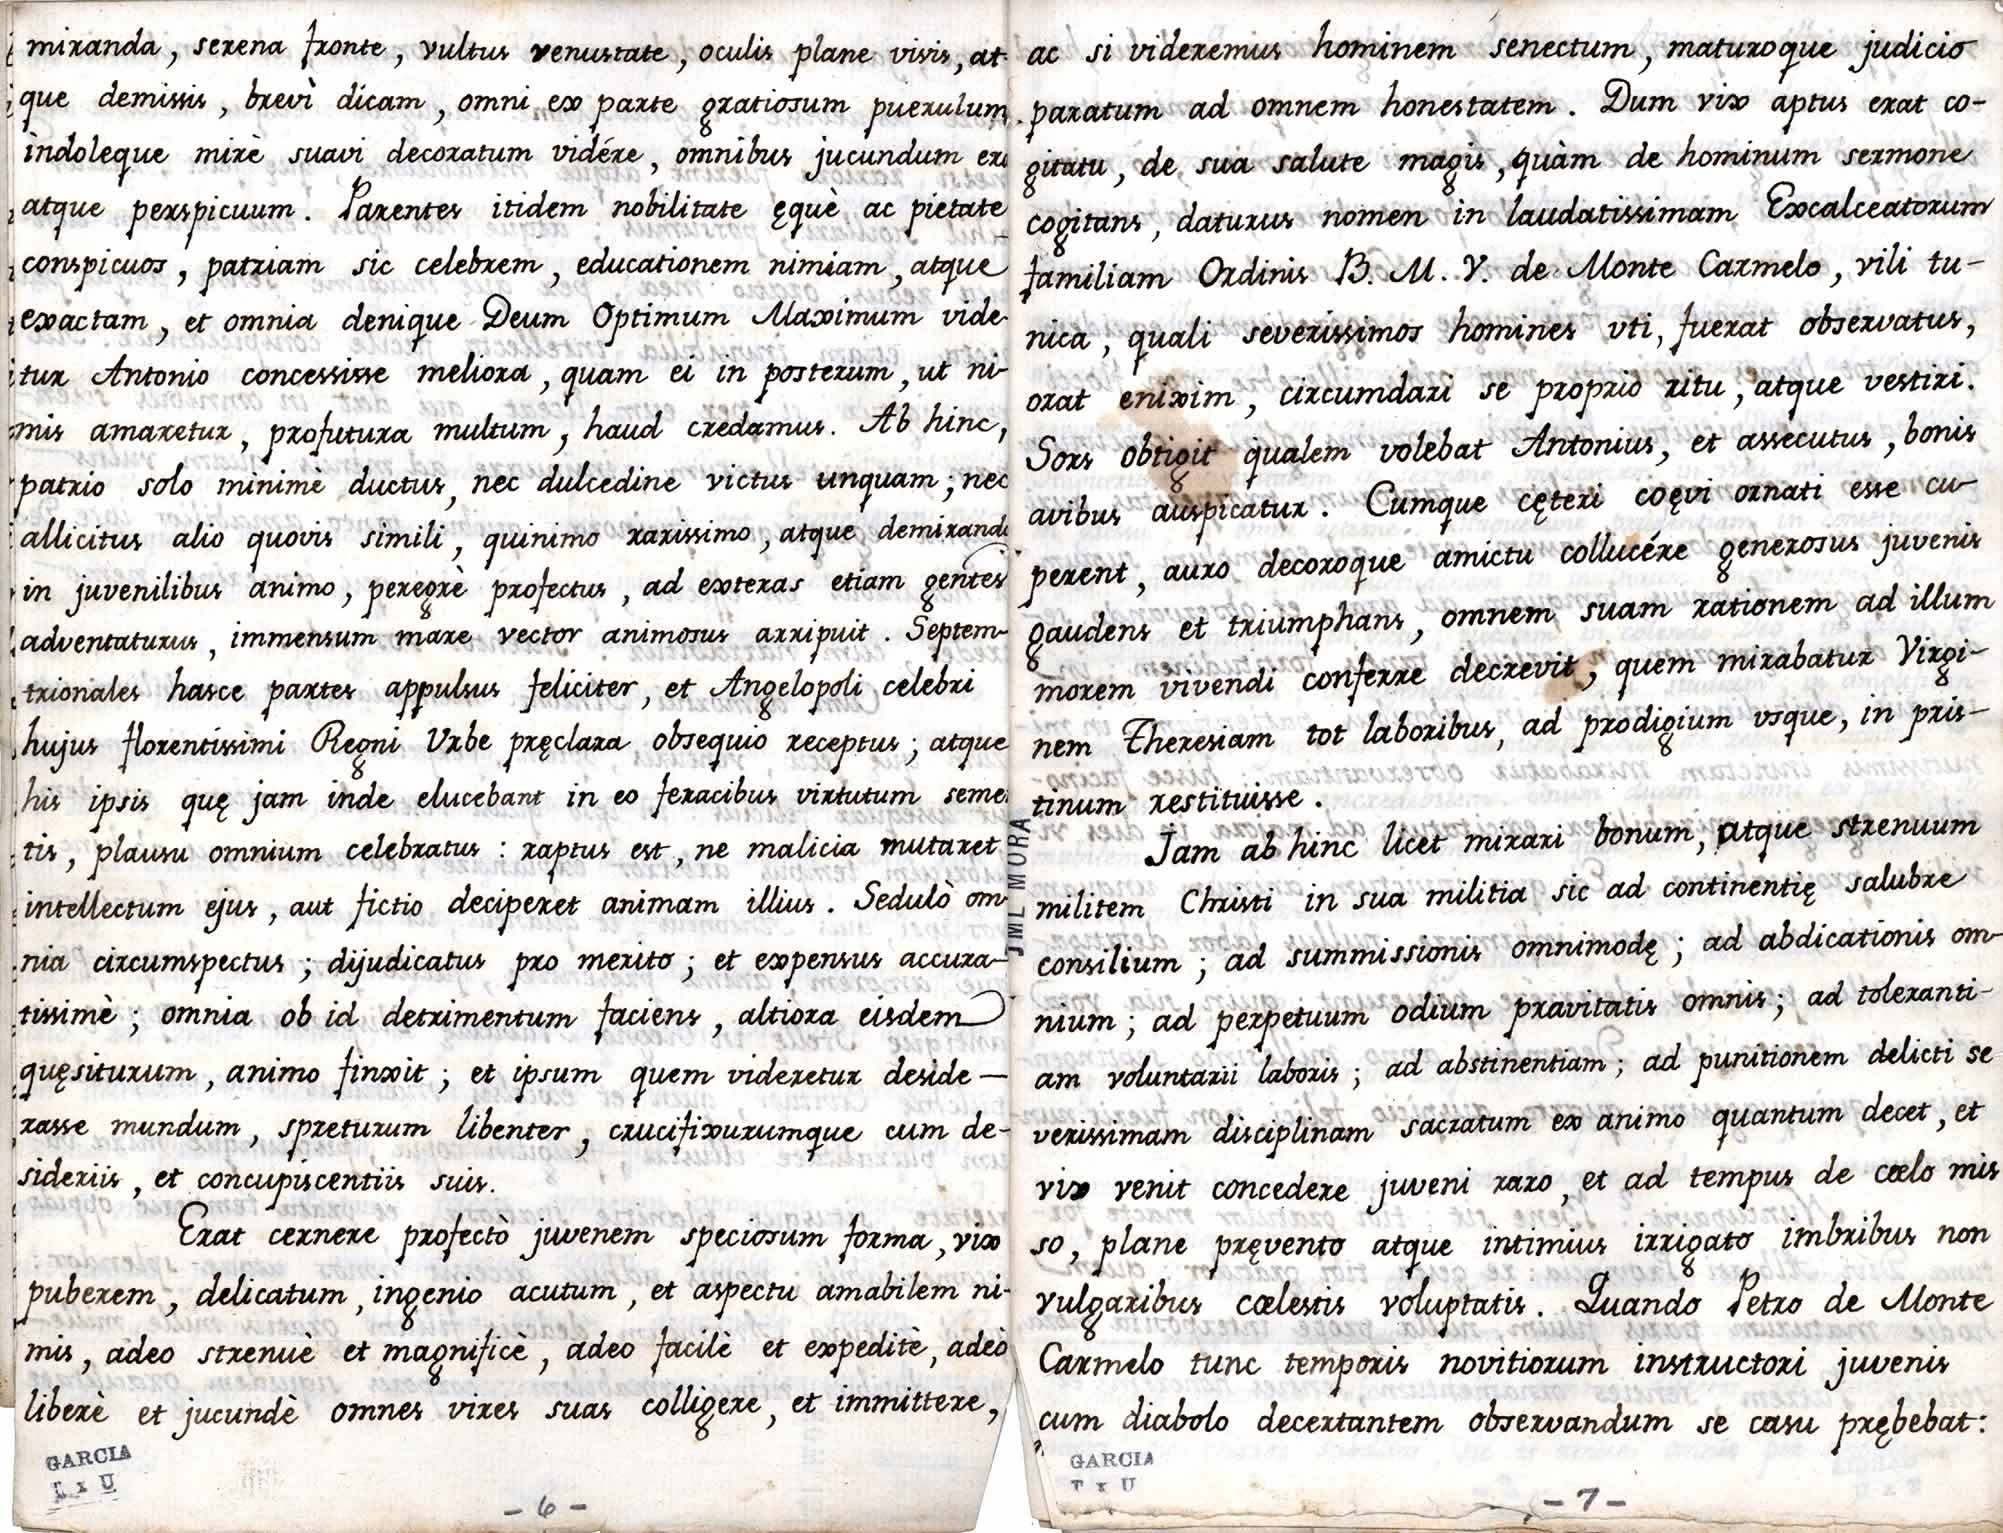 miranda, serena fronte, vultus venustate, oculis plane visis, at-
que demissis, brevì dicam, omni ex parte gratiosum puerulum,
ìndoleque mirè suavi decoratum vidére, omnibus jucundum era
atque perspicuum. Parentes itidem nobilitate ęquè ac pietate
conspicuos, patriam sic celebrem, educationem nimiam, atque
exactam, et omnia denique Deum Optimum Maximum vide-
tur Antonio concessisse meliora, quam ei in posterum, ut ni-
mis amaretur, profutura multum, haud credamus. Ab hinc,
patrio solo minimè ductus, nec dulcedine victus unquam; nec
allicitus alio quovis simili, quinimo rarissimo, atque demirando
in juvenilibus animo, peregrè profectus, ad exteras etiam gentes
adventaturus, immensum mare vector animosus arripuit. Septem-
trionales hasce partes appulsus feliciter, et Angelopoli celebri
hujus florentissimi Regni Urbe pręclara obsequio receptus; atque
his ipsis quę jam inde elucebant in eo feracibus virtutum semen
tis, plausu omnium celebratus: raptus est, ne malicia mutaret
intellectum ejus, aut fictio deciperet animam illius. Sedulò om-
nia circumspectus; dijudicatus pro merito; et expensus accura-
tissimè; omnia ob id detrimentum faciens, altiora eisdem
quęsiturum, animo finxit; et ipsum quem videretur deside-
rasse mundum, spreturum libenter, crucifixurumque cum de-
sideriis, et concupiscentiis suis.
Erat cernere profectò juvenem speciosum forma, vix
puberem, delicatum, ingenio acutum, et aspectu amabilem ni-
mis, adeo strenuè et magnificè, adeo facilè et expeditè, adeò
liberè et jucundè omnes vires suas colligere, et immittere,
GARCIA
T x U
- 6 -
ac si videremius hominem senectum, maturoque judicio
paratum ad omnem honestatem. Dum vix aptus erat co-
gitatu, de sua salute magis, quàm de hominum sermone
cogitans, daturus nomen in laudatissimam Excalceatorum
familiam Ordinis B. M. V. de Monte Carmelo, vili tu-
nica, quali severissimos homines vti, fuerat observatus,
orat enixim, circumdari se proprio ritu, atque vestiri.
Sors obtigit qualem volebat Antonius, et assecutus, bonis
avibus auspicatur. Cumque cęteri coęvi ornati esse cu-
perent, auro decoroque amictu collucére generosus juvenis
gaudens et triumphans, omnem suam rationem ad illum
morem vivendi conferre decrevit, quem mirabatur Virgi-
nem Theresiam tot laboribus, ad prodigium vsque, in pris-
tinum restituisse.
Jam ab hinc licet mirari bonum, atque strenuum
militem Christi in sua militia sic ad continentię salubre
consilium; ad summissionis omnimodę; ad abdicationis om-
nium; ad perpetuum odium pravitatis omnis; ad toleranti-
am voluntarii laboris; ad abstinentiam; ad punitionem delicti se
verissimam disciplinam sacratum ex animo quantum decet, et
vix venit concedere juveni raro, et ad tempus de cœlo mis
so, plane pręvento atque intimius irrigato imbribus non
vulgaribus cœlestis voluptatis. Quando Petro de Monte
Carmelo tunc temporis novitiorum instructori juvenis
cum diabolo decertantem observandum se casu prębebat:
JML MORA
GARCIA
T x U
- 7 -